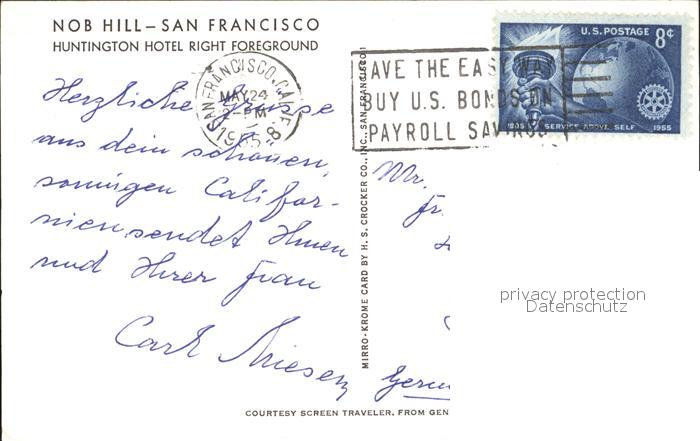 NOB HILL—SAN FRANCISCO
HUNTINGTON HOTEL RIGHT FOREGROUND
Herzliche Grüsse
aus dem schönen,
sonnigen Califor-
nien sendet Ihnen
und Ihrer Frau
Carl
SAN FRANCISCO, CALIF.
MAY 24
PM
1955
8
AVE THE EASY WAY
BUY U.S. BONDS ON
PAYROLL SAVINGS
U.S. POSTAGE 8¢
1905 SERVICE ABOVE SELF 1955
MIRRO-KROME CARD BY H. S. CROCKER CO., INC., SAN FRANCISCO 1
Mr.
Fr.
Germ
privacy protection
Datenschutz
COURTESY SCREEN TRAVELER, FROM GEN